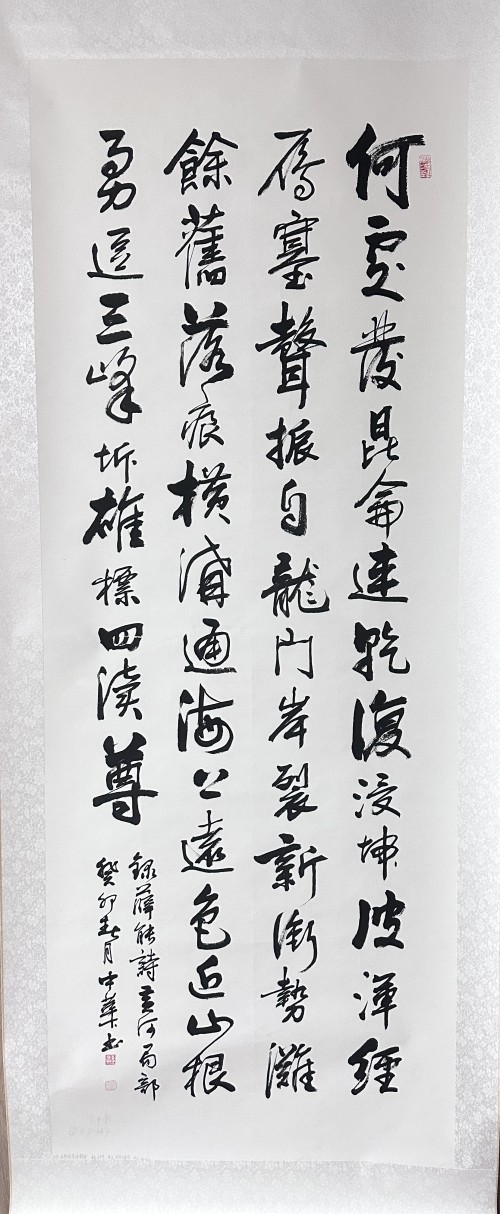 何處發昆侖連乾復浸坤波渾經
雁塞聲振自龍門岸裂新衝勢灘
餘舊落痕橫溝通海上遠色近山根
勇逗三峰坼雄標四瀆尊
錄薛能詩黃河局部
癸卯春月中華書